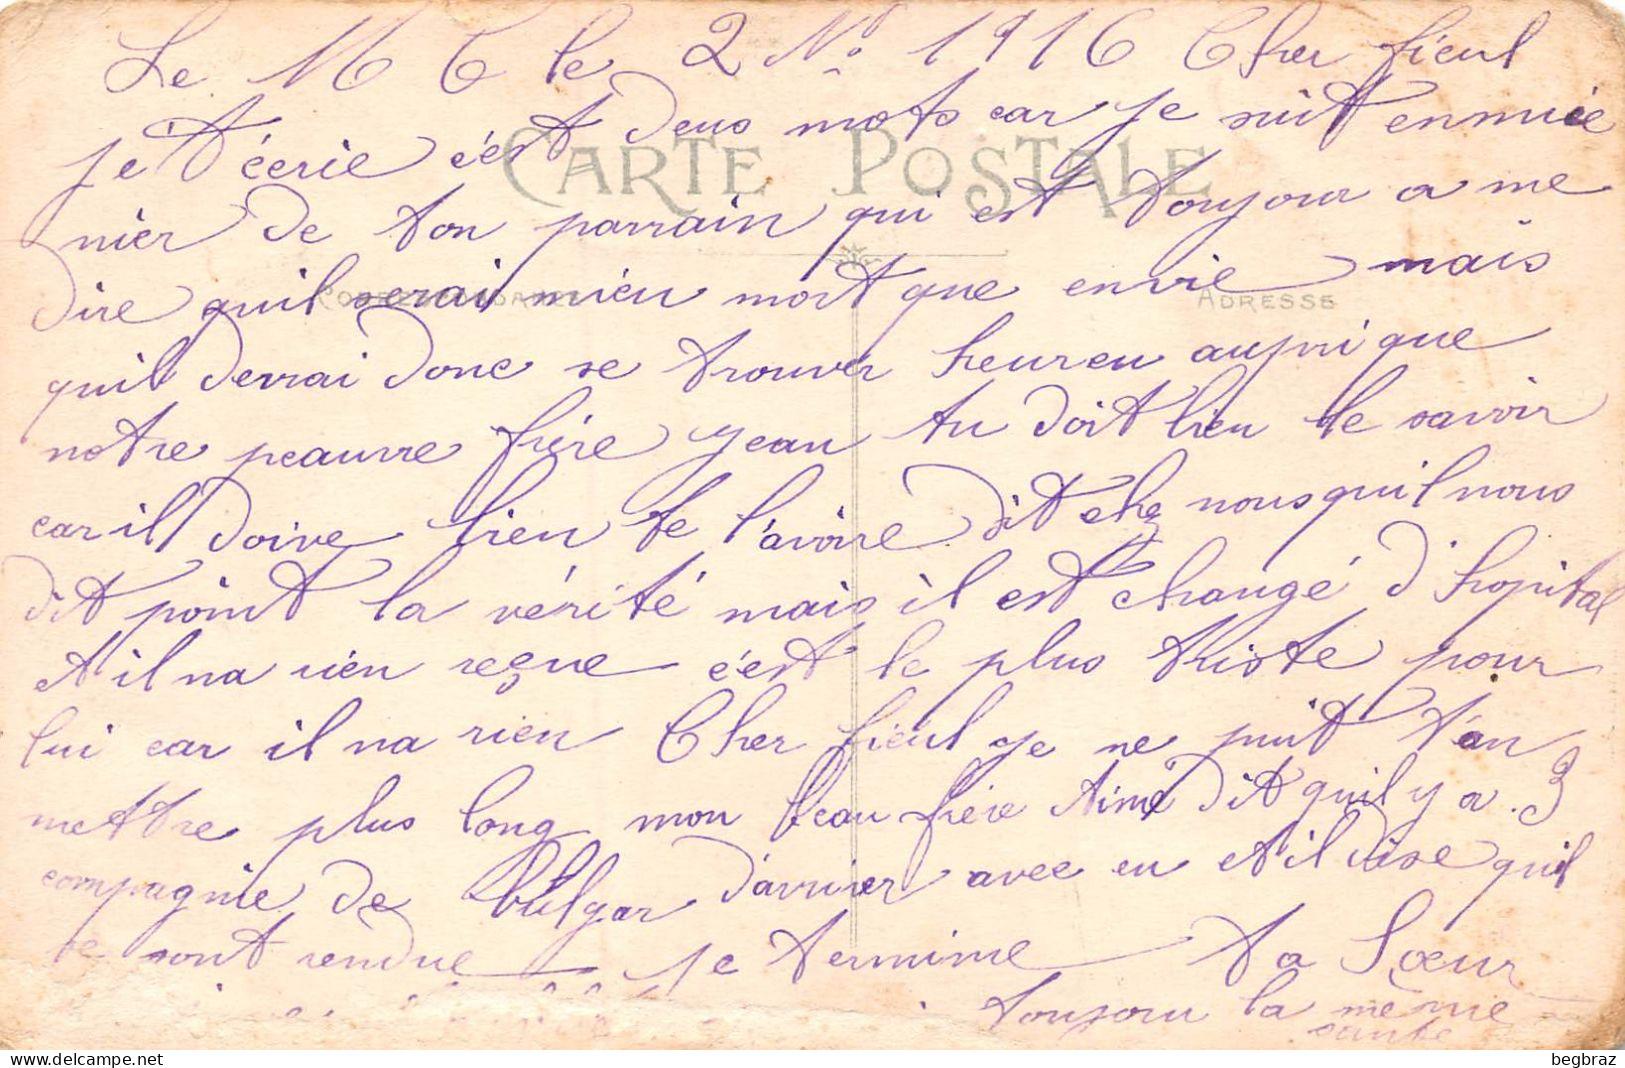 Le M C le 2 No 1916 Cher fieul
je t'écrie c'est deus mots car je suit ennuiée
nier de ton parrain qui est toujour a me
dire quil serai mieu mort que envie mais
quil devrai donc se trouver heureu aupri que
notre peauvre frère jean tu doit bien le savoir
car il doive bien te l'avoire dit chez nous quil nous
dit point la vérité mais il est changé d'hopital
et il na rien reçue c'est le plus triste pour
lui car il na rien Cher fieul je ne puit t'an
mettre plus long mon beau frère Aimé dit quil y a 3
compagnie de bulgar d'arriver avec eu et il dise quil
se sont rendue je termine ta Sœur
toujour la même
sante
CARTE POSTALE
CORRESPONDANCE
ADRESSE
begbraz